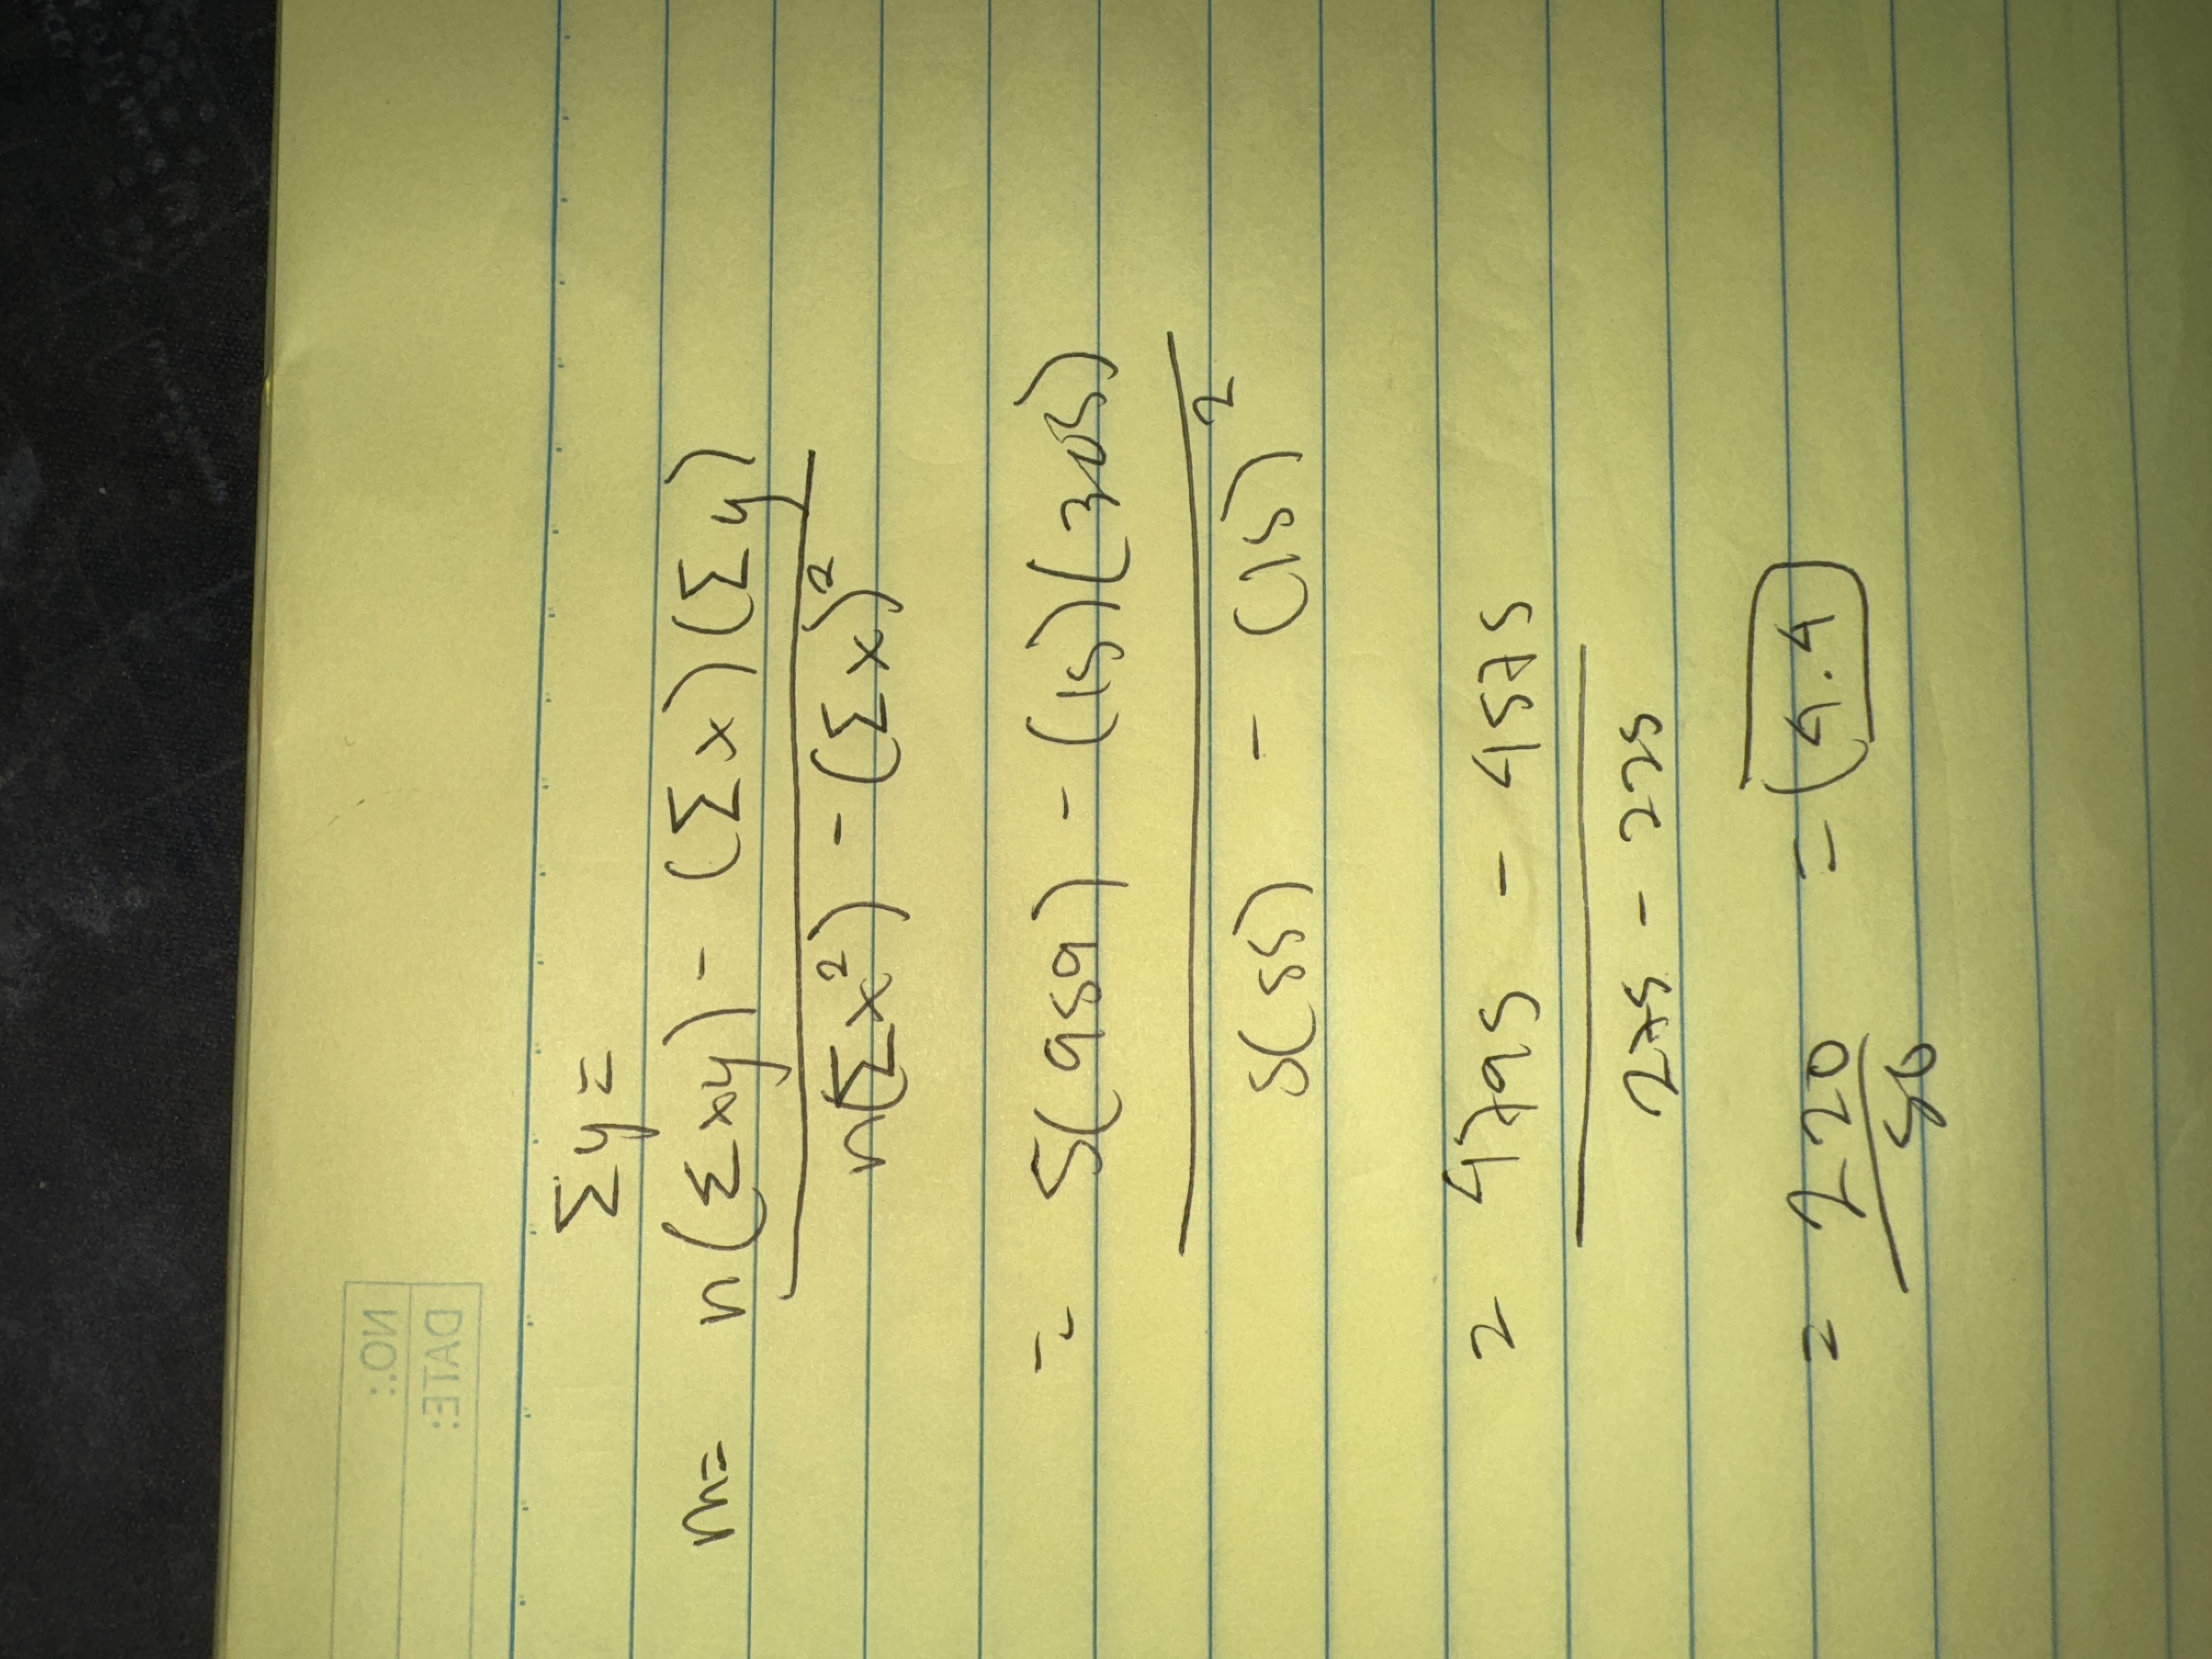 NO.:
DATE:
Σy =
m= n(Σxy) - (Σx)(Σy)
n(Σx²) - (Σx)²
= 5(959) - (15)(305)
5(55) - (15)²
= 4795 - 4575
275 - 225
= 220 = 4.4
50